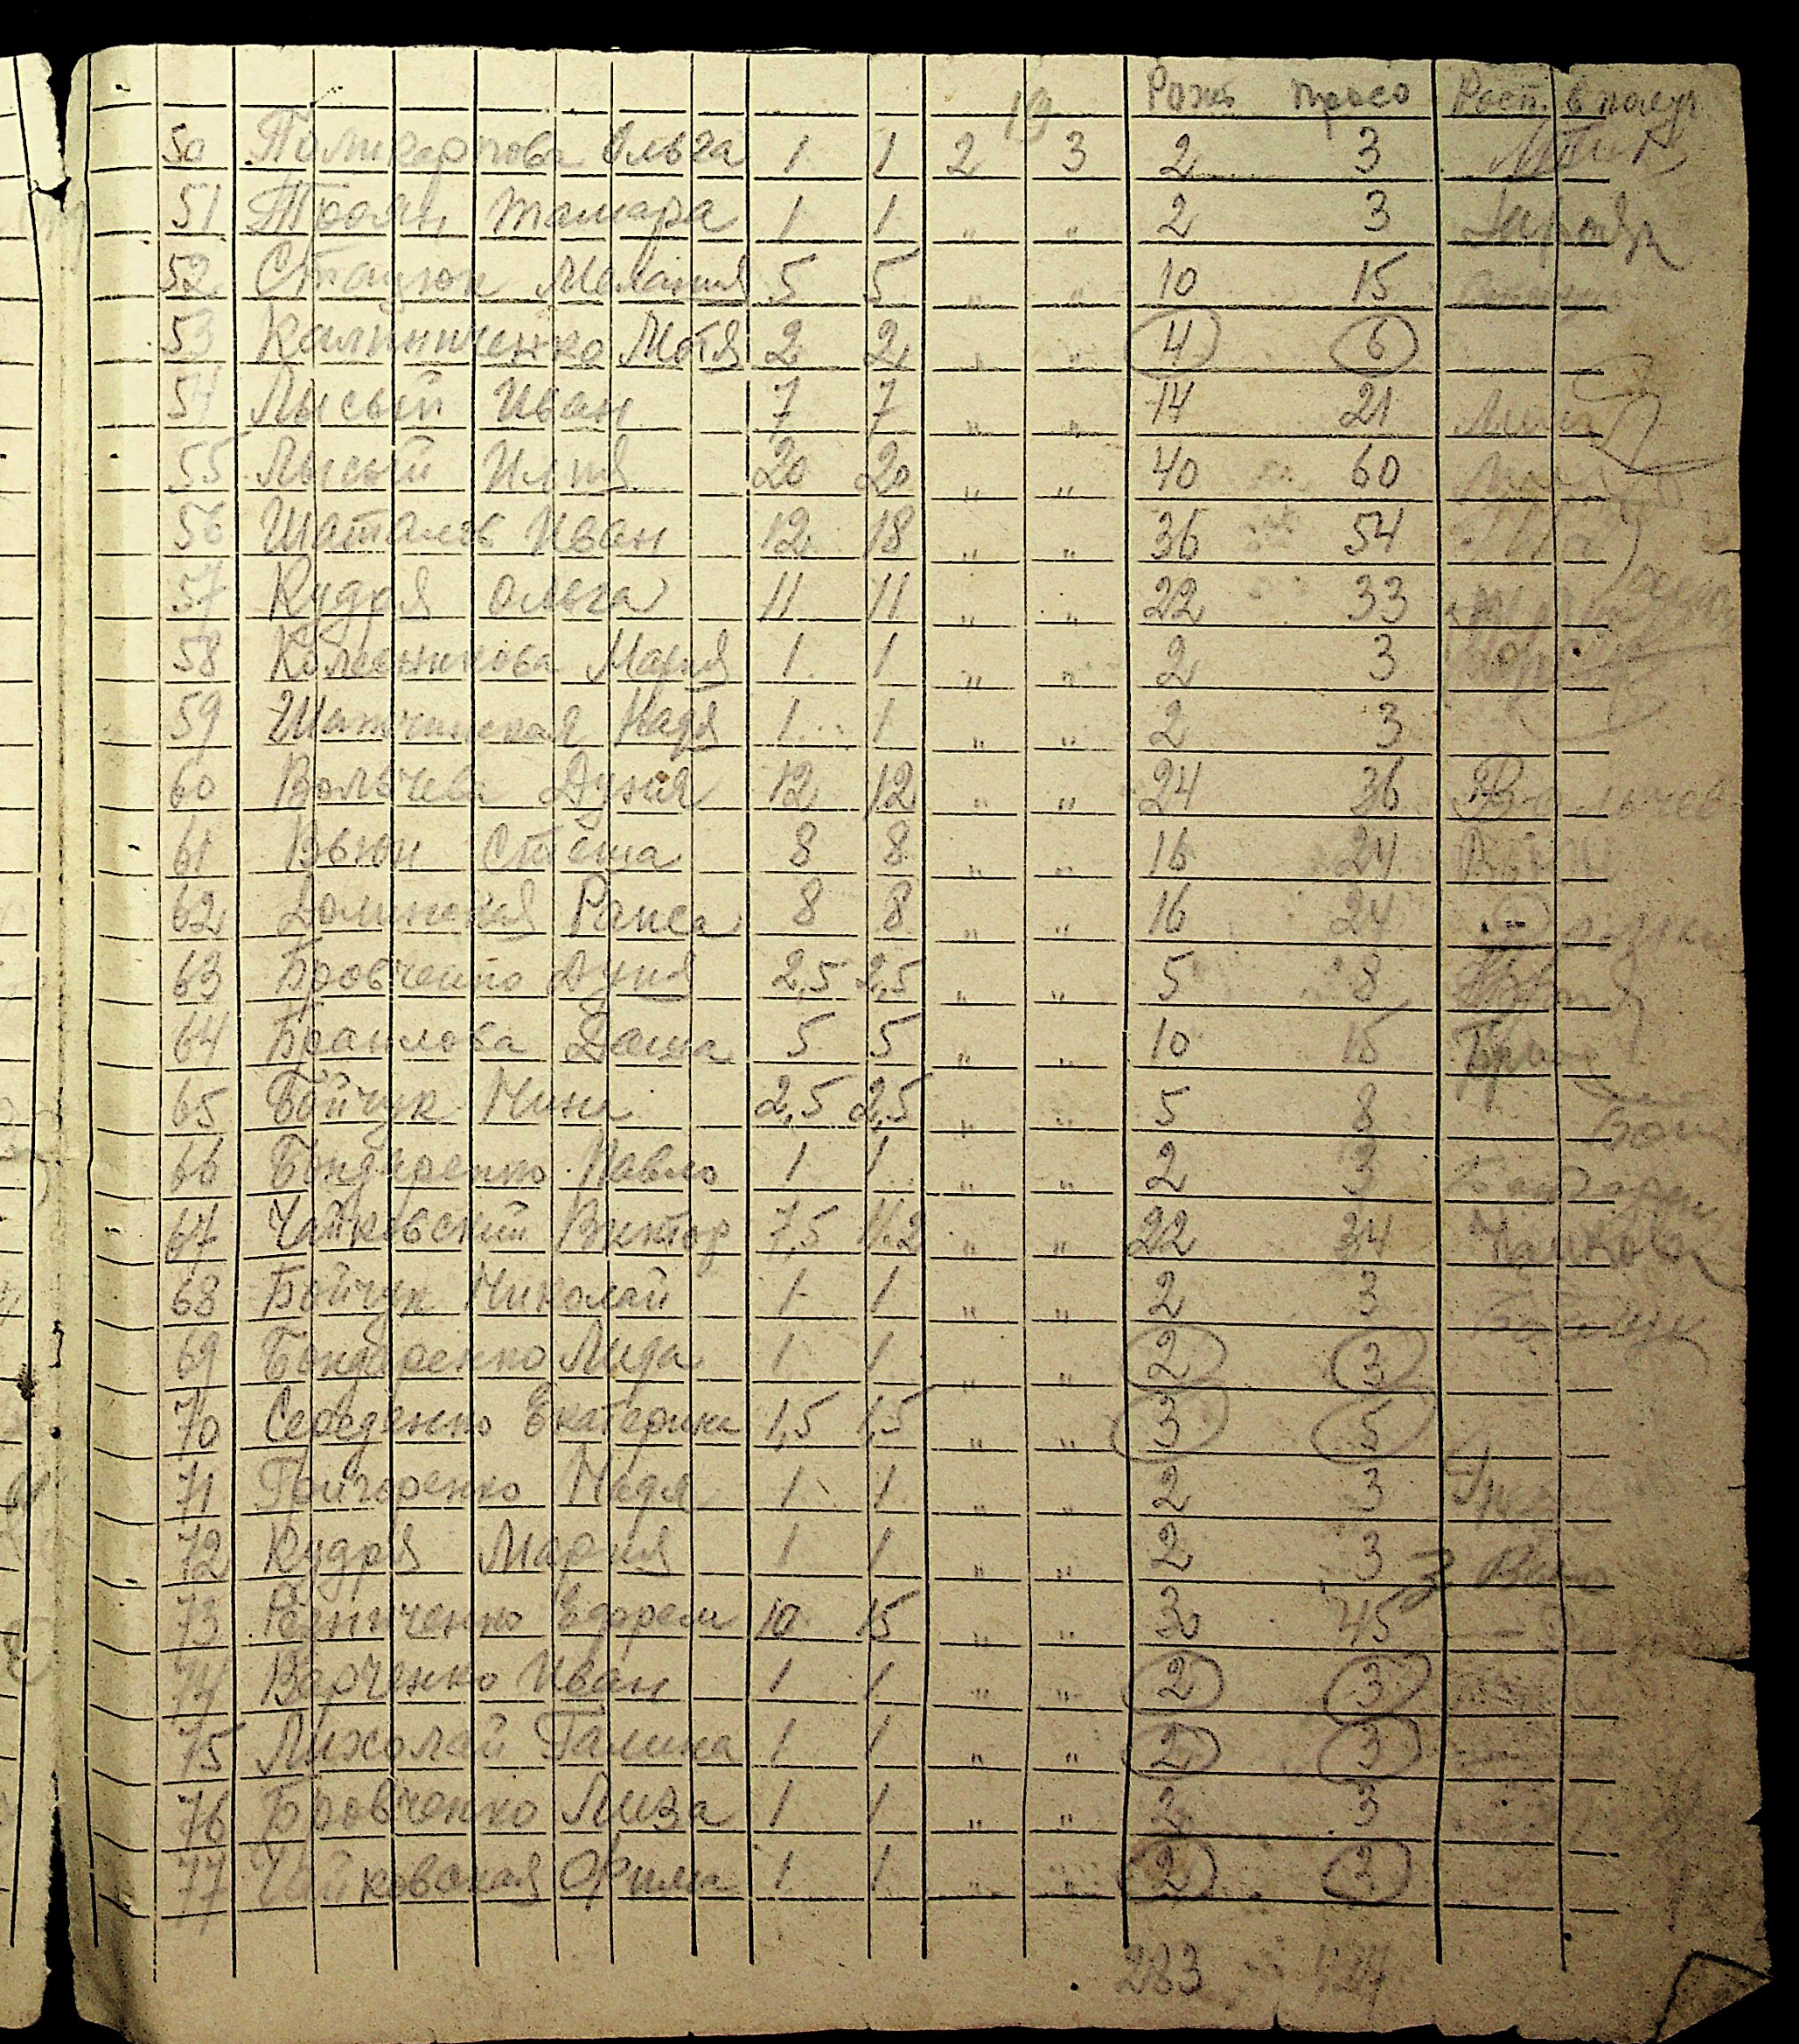 19 Рожь просо Расп. в получ.
50 Поликарпова Ольга 1 1 2 3 2 3
51 Троян Тамара 1 1 " " 2 3
52 Стацюк Мелания 5 5 " " 10 15
53 Калинниченко Мотя 2 2 " " 4 6
54 Лысый Иван 7 7 " " 14 21
55 Лысый Илья 20 20 " " 40 60
56 Шаталов Иван 12 18 " " 36 54
57 Кудря Ольга 11 11 " " 22 33
58 Колесникова Мария 1 1 " " 2 3
59 Надя 1 1 " " 2 3
60 Вольчева Дуня 12 12 " " 24 36 Вольчев
61 Вьюн Стеша 8 8 " " 16 24 Вьюн
62 Долинская Раиса 8 8 " " 16 24
63 Бровченко Дуня 2,5 2,5 " " 5 8
64 Браилова Даша 5 5 " " 10 15 Бра
65 Бойчук Нина 2,5 2,5 " " 5 8 Бой
66 Бондаренко Павло 1 1 " " 2 3 Бондарен
67 Чайковский Виктор 7,5 11.2 " " 22 34 Чайков
68 Бойчук Николай 1 1 " " 2 3 Бойчук
69 Бондаренко Лида 1 1 " " 2 3
70 Середенко Екатерина 1,5 1,5 " " 3 5
71 Григоренко Надя 1 1 " " 2 3
72 Кудря Мария 1 1 " " 2 3
73 Резниченко Ефрем 10 15 " " 30 45
74 Варченко Иван 1 1 " " 2 3
75 Лихолай Галина 1 1 " " 2 3
76 Бровченко Лиза 1 1 " " 2 3
77 Чайковская Фима 1 1 " " 2 3
283 424